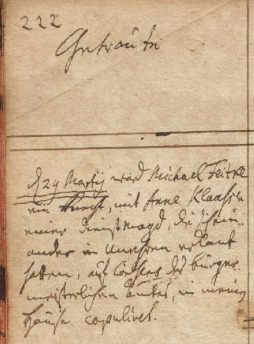 222
Getraute
d 29 Martij ward Michael Feitke
ein Knecht, mit Anne Klaaßen
einer Dienstmagd, die sich ein
ander in Unehren erkant
hatten, auf Consens des bürger
meisterlichen Amtes, in meinem
Hause copuliret.